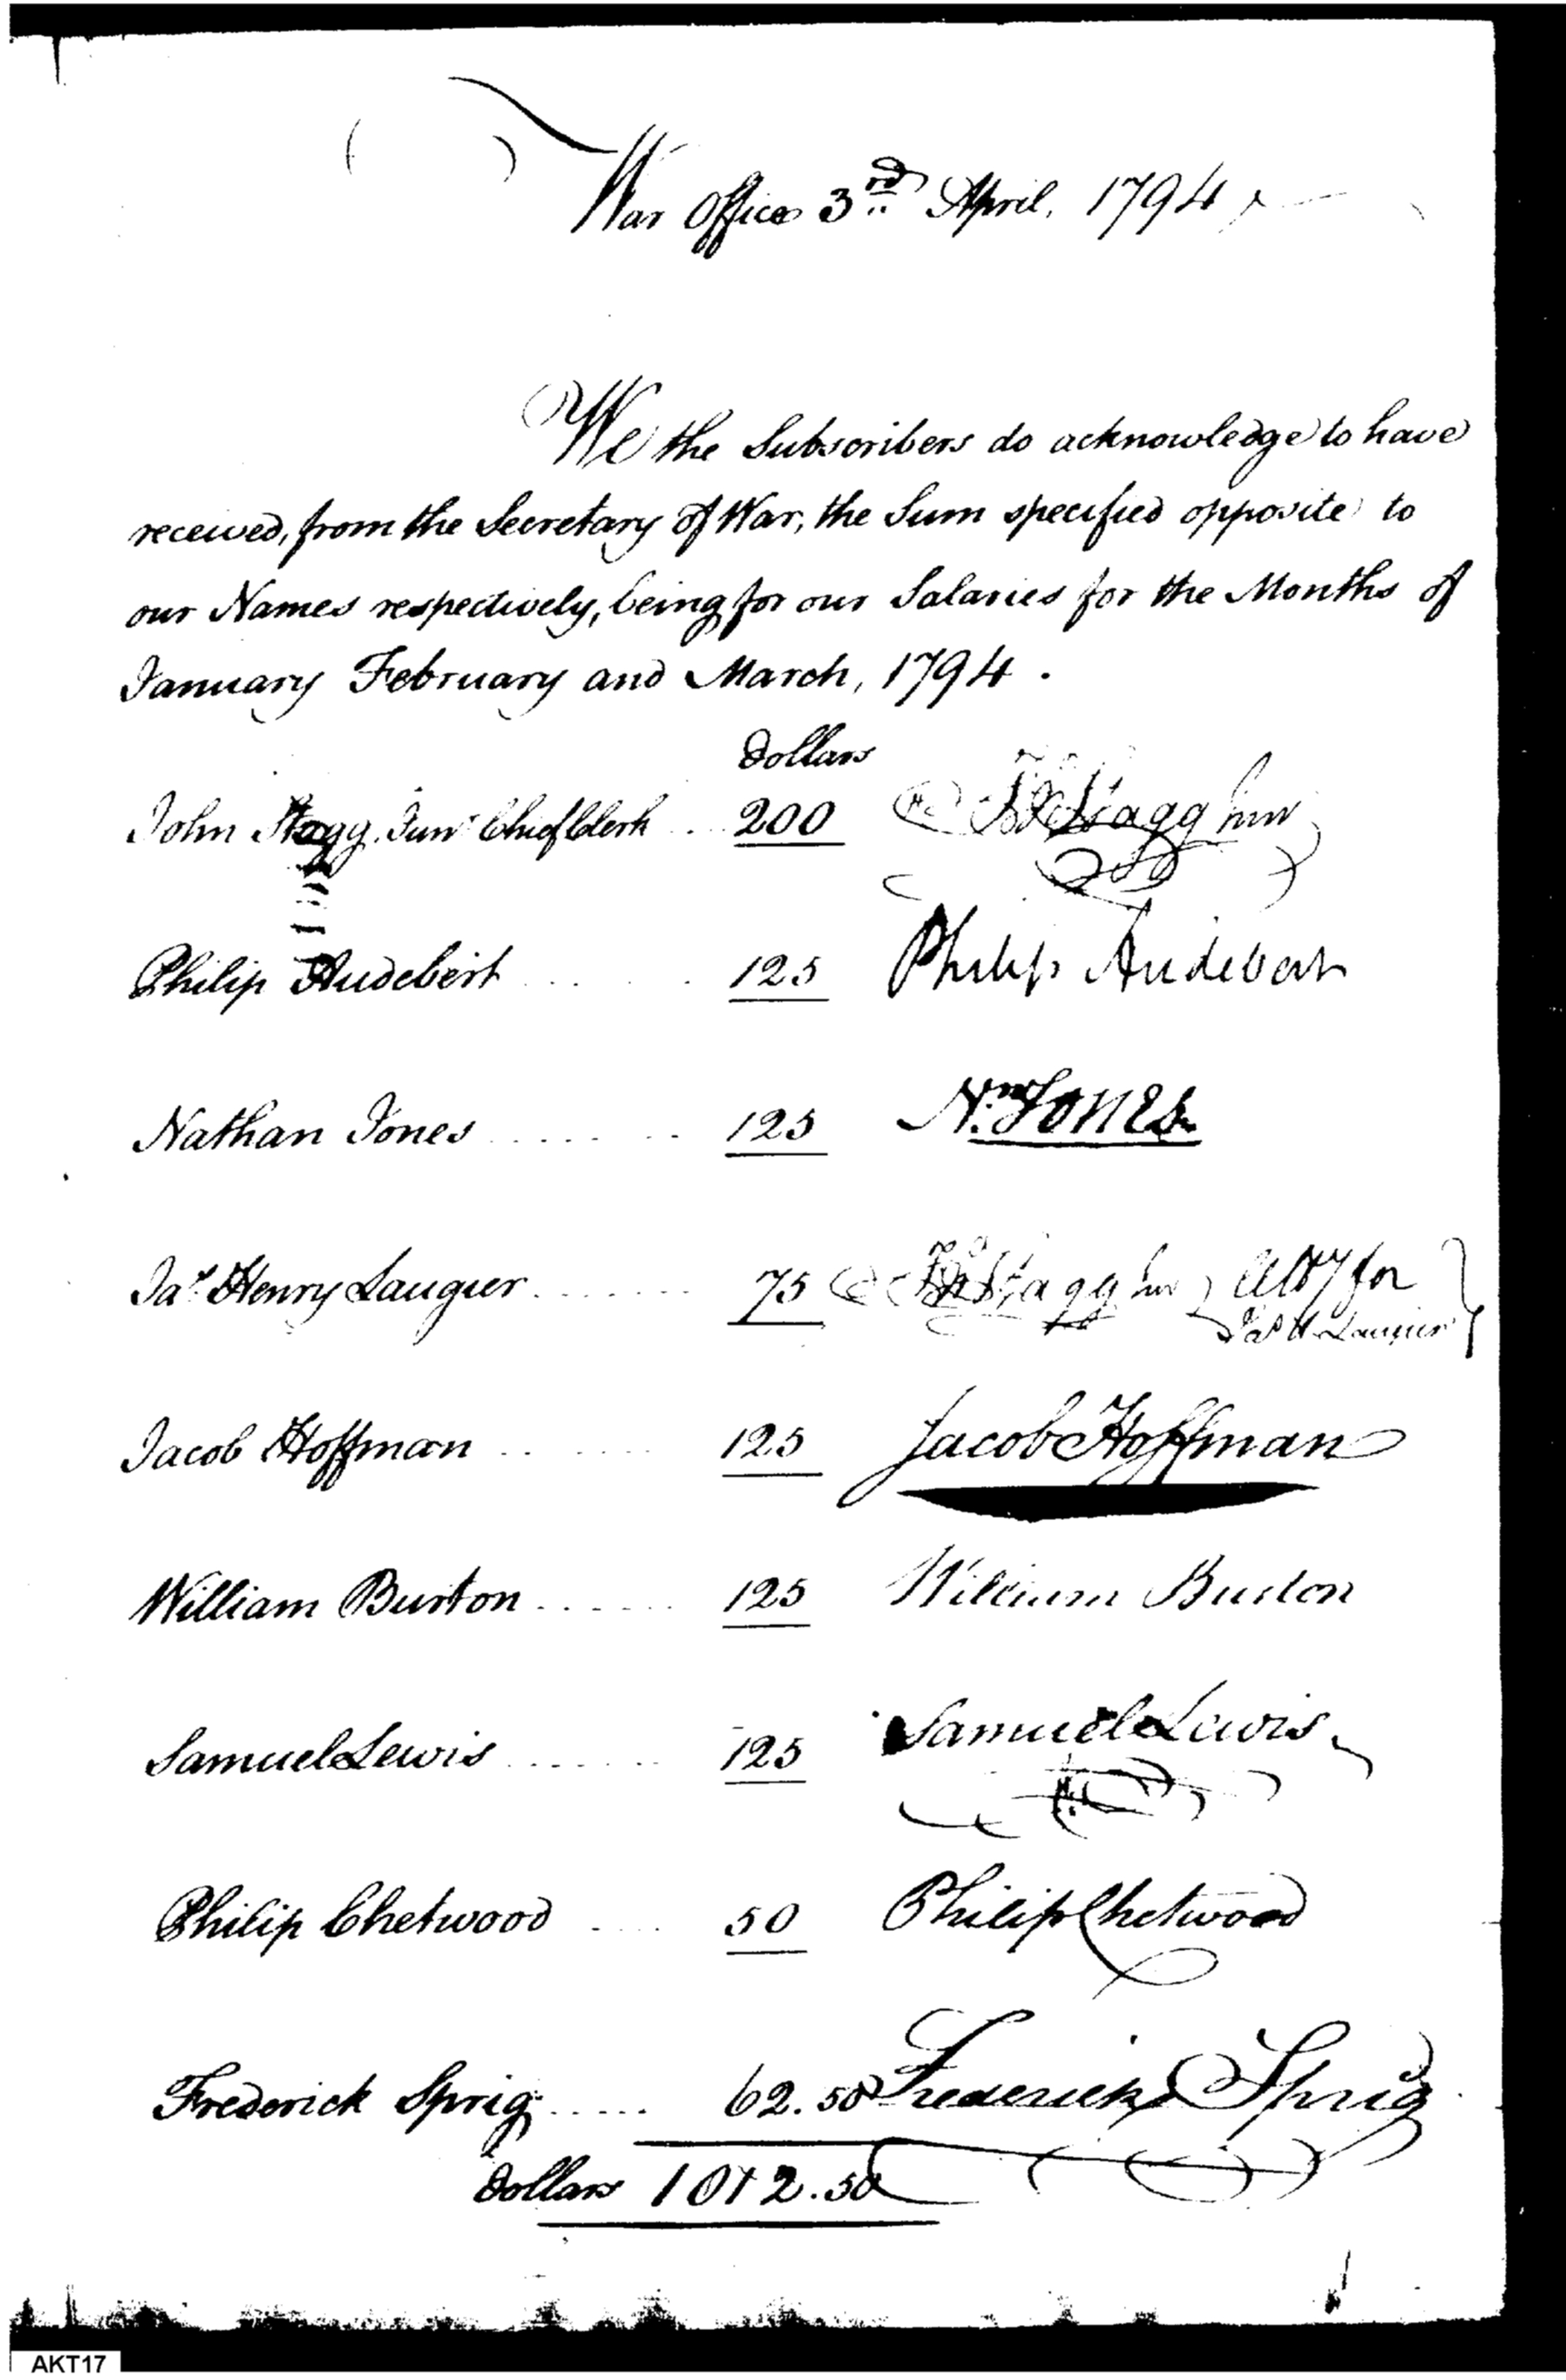 War Office 3rd April, 1794
We the Subscribers do acknowledge to have
received, from the Secretary of War, the Sum specified opposite to
our Names respectively, being for our Salaries for the Months of
January February and March, 1794.
Dollars
John Stagg Junr Chief Clerk .. 200 Jno Stagg Junr
Philip Audebert ..... 125 Philip Audebert
Nathan Jones ...... 125 Nn Jones
Jas Henry Laugier ....... 75 Jno Stagg Junr Atty for
Jas H Laugier
Jacob Hoffman ...... 125 Jacob Hoffman
William Burton ...... 125 William Burton
Samuel Lewis ...... 125 Samuel Lewis
Philip Chetwood .... 50 Philip Chetwood
Frederick Sprig ..... 62.50 Frederick Sprig
Dollars 1012.50
AKT17